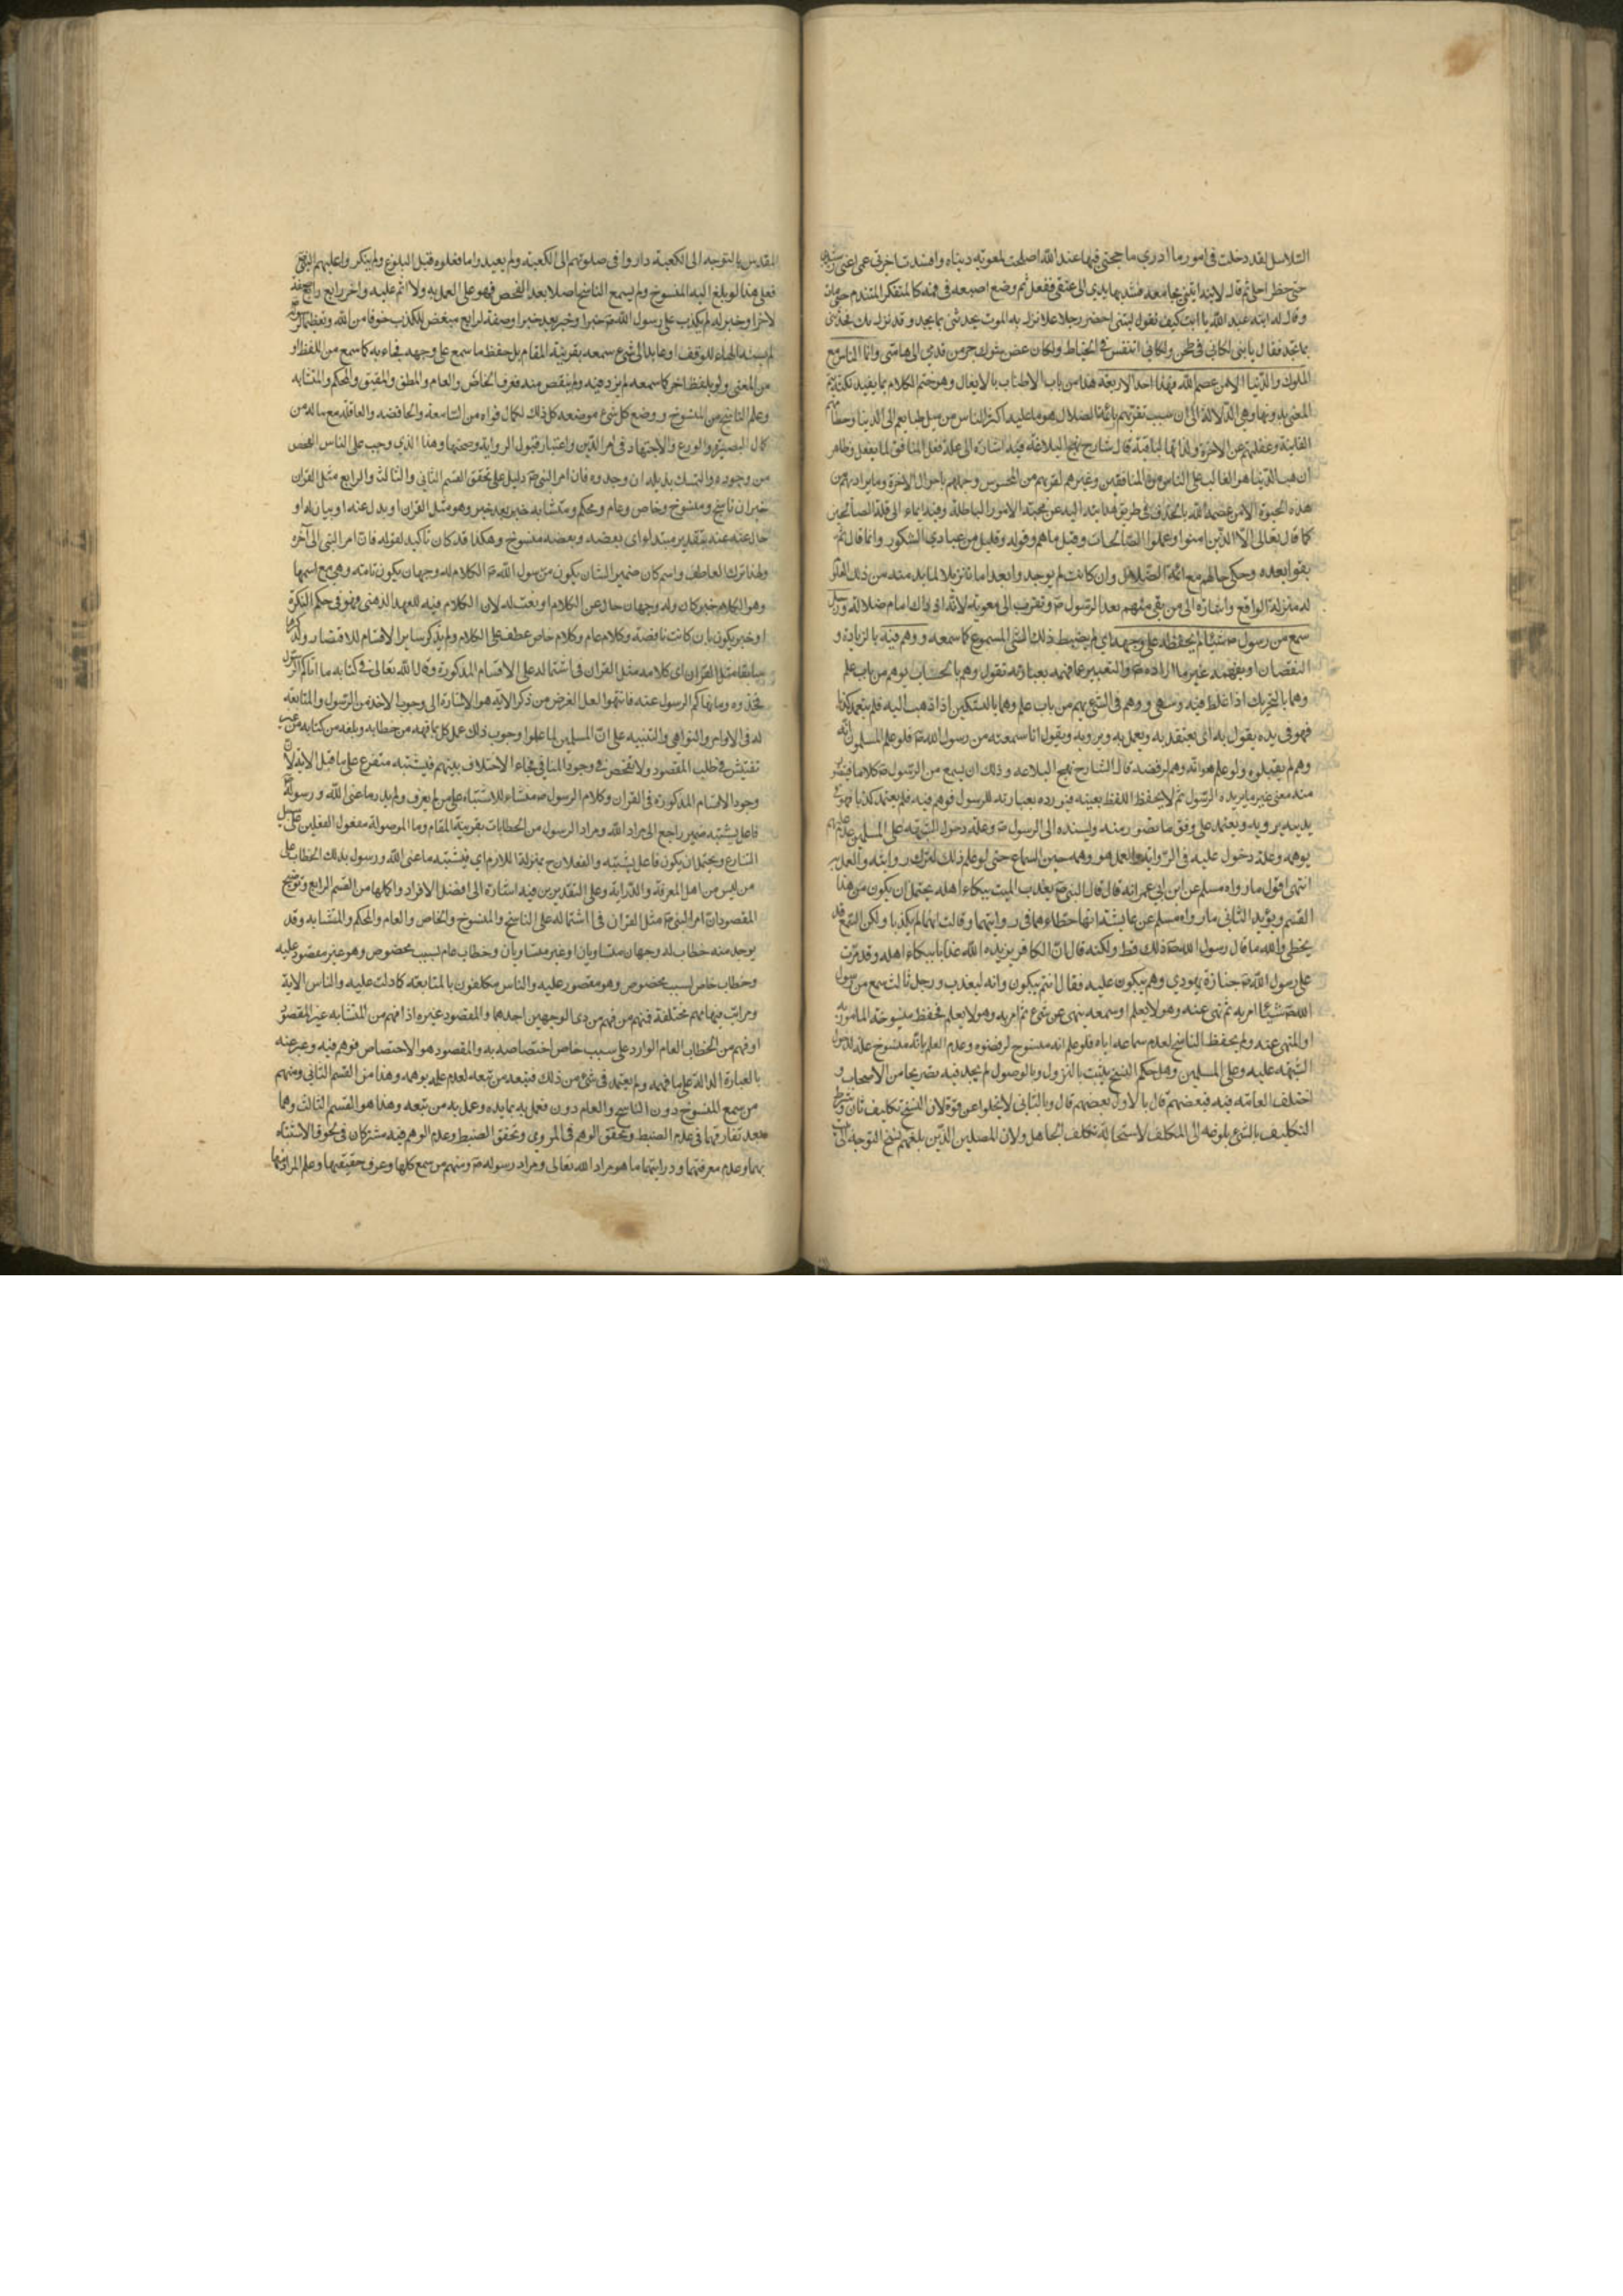 السلاسل لقد دخلت في امور ما ادري ما حجتي فيها عند الله اصلحت لمعوية دنياه وافسدت اخرتي عمي عني رشدي
حتى حضر اجلي ثم قال لابنه ايتني بجامعة فشد بها يدي الى عنقي ففعل ثم وضع اصبعه في فمه كالمتفكر المتندم حتى مات
وقال له ابنه عبد الله يا ابت كيف تقول ليتني احضر رجلا عاقلا نزل به الموت يحدثني بما يجد وقد نزل بك فحدثني
بما تجد فقال يا بني لكاني في طحن ولكاني اتنفس في الخياط ولكان غصن شوك جر من قدمي الى هامتي وانما الناس مع
الملوك والدنيا الا من عصم الله فهذا احد الاربعة هذا من باب الاطناب بالايغال وهو ختم الكلام بما يفيد نكتة يتم
المعنى بدونها وهي الدلالة الى ان سبب تقربهم بائمة الضلال هو ما عليه اكثر الناس من ميل طبايعهم الى الدنيا وحطامها
الفانية وغفلتهم عن الاخرة ولذاتها الباقية قال شارح نهج البلاغة فيه اشارة الى علة فعل المنافق لما يفعل وظاهر
ان حب الدنيا هو الغالب على الناس من المنافقين وغيرهم لقربهم من المحسوس وجهلهم باحوال الاخرة وما يراد بهم من
هذه الحيوة الا من عصمه الله بالجذب في طريق هدايته اليه عن محبته الامور الباطلة وفيه ايماء الى قلة الصالحين
كما قال تعالى الا الذين امنوا وعملوا الصالحات وقليل ما هم وقوله وقليل من عبادي الشكور وانما قال ثم
بقوا بعده وحكى حالهم مع ائمة الضلال وان كانت لم يوجد وا بعد اما تنزيلا لما بد منه من ذلك
له منزلة الواقع واشارة الى من بقي منهم بعد الرسول ص وتقرب الى معوية لانه اذ ذاك امام ضلالة ورجل
سمع من رسول ص شيئا لم يحفظه على وجهه اي لم يضبط ذلك الشيء المسموع كما سمعه ووهم فيه بالزيادة و
النقصان او بفهمه غير ما اراده ص والتعبير عما فهمه بعبارته تقول وهم بالحساب يوهم من باب علم
وهما بالتحريك اذا غلط فيه وسهى ووهم في الشيء يهم من باب علم وهما بالتسكين اذا ذهب اليه فلم يتعمد كذبا
فهو في يده يقول به اي يعتقد به ويعمل به ويرويه ويقول انا سمعته من رسول الله ص فلو علم المسلمون انه
وهم لم يقبلوه ولو علم هو انه وهم لرفضه قال الشارح نهج البلاغة وذلك ان يسمع من الرسول ص كلاما فيتصور
منه معنى غير ما يريده الرسول ثم لا يحفظ اللفظ بعينه فيورده بعبارته للرسول فوهم فيه فلم يتعمد كذبا فهو في
يديه يرويه ويعتمد على وفق ما تصور منه ويسنده الى الرسول ص وعلة دخول الشبهة على المسلمين عدم علمهم
بوهمه وعلة دخول عليه في الرواية والعمل هو وهمه حين السماع حتى لو علم ذلك لترك روايته والعمل به
انتهى اقول ما رواه مسلم عن ابن ابي عمر انه قال قال النبي ص يعذب الميت ببكاء اهله يحتمل ان يكون من هذا
القسم ويؤيد الثاني ما رواه مسلم عن عايشة انها خطاءهما في روايتهما وقالت انهما لم يكذبا ولكن السمع قد
يخطي والله ما قال رسول الله ص ذلك قط ولكنه قال ان الكافر يزيده الله عذابا ببكاء اهله وقد مرت
على رسول الله ص جنازة يهودي وهم يبكون عليه فقال انتم تبكون وانه ليعذب ورجل ثالث سمع من رسول
الله ص شيئا امر به ثم نهى عنه وهو لا يعلم او سمعه ينهى عن شيء ثم امر به وهو لا يعلم فحفظ منسوخه المامور به
او المنهي عنه ولم يحفظ الناسخ لعدم سماعه اياه فلو علم انه منسوخ لرفضوه وعدم العلم بانه منسوخ علة لدخول
الشبهة عليه وعلى المسلمين وهل حكم النسخ يثبت بالنزول او بالوصول لم يجد فيه تصريحا من الاصحاب و
اختلف العامة فيه فبعضهم قال بالاول وبعضهم قال وبالثاني لا يخلوا عن قوة لان النسخ تكليف ثان وشرط
التكليف بالشيء بلوغه الى المتكلف لاستحالة تكلف الجاهل ولان المصلين الذين بلغهم نسخ التوجه الى بيت
المقدس بالتوجه الى الكعبة داروا في صلوتهم الى الكعبة ولم يعيدوا ما فعلوه قبل البلوغ ولم ينكروا عليهم النبي ص
فعلى هذا لو بلغ اليه المنسوخ ولم يسمع الناسخ اصلا بعد الفحص فهو على العمل به ولا اثم عليه واخر رابع رابع صفة
لاخر او خبر له لم يكذب على رسول الله ص خبر او خبر بعد خبر او صفة لرابع مبغض للكذب خوفا من الله وتعظيما لرسوله
لم ينسه الهاء للوقف او عايد الى شيء سمعه بقرينة المقام بل حفظ ما سمع على وجهه فجاء به كما سمع من اللفظ او
من المعنى ولو بلفظ اخر كما سمعه لم يزد فيه ولم ينقص منه فعرف الخاص والعام والمطلق والمقيد والمحكم والمتشابه
وعلم الناسخ من المنسوخ ووضع كل شيء موضعه كل ذلك لكمال قواه من السامعة والحافظة والعاقلة مع ماله من
كمال البصيرة والورع والاجتهاد في امر الدين واعتبار قبول الرواية وصحتها وهذا الذي وجب على الناس الفحص
من وجوده والتمسك بذيله ان وجدوه فان امر النبي ص دليل على تحقق القسم الثاني والثالث والرابع مثل القران
خبر ان ناسخ ومنسوخ وخاص وعام ومحكم ومتشابه خبر بعد خبر وهو مثل القران او بدل عنه او بيان له او
حال عنه عند بتقدير مبتدا او اي بعضه وبعضه منسوخ وهكذا قد كان تاكيد لقوله فان امر النبي الى اخره
ولهذا ترك العاطف واسم كان ضمير الشان يكون من رسول الله ص الكلام له وجهان يكون تامة وهي مع اسمها
وهو الكلام خبر كان وله وجهان حال عن الكلام او نعت له لان الكلام فيه للعهد الذهني وهو في حكم النكرة
او خبر يكون بان كانت ناقصة وكلام عام وكلام خاص عطف على الكلام ولم يذكر ساير الاقسام للاقتصار ولذكرها
سابقا مثل القران اي كلامه مثل القران في اشتماله على الاقسام المذكورة وقال الله تعالى في كتابه ما اتاكم الرسول
فخذوه وما نهاكم الرسول عنه فانتهوا لعل الغرض من ذكر الاية هو الاشارة الى وجوب الاخذ من الرسول والمتابعة
له في الاوامر والنواهي والتنبيه على ان المسلمين لما علموا وجوب ذلك عمل كل بما فهمه من خطابه وبلغه من كتابه من غير
تفتيش في طلب المقصود ولا تفحص في وجود المنافي فجاء الاختلاف بينهم فيشتبه متفرع على ما قبل الاية لان
وجود الاقسام المذكورة في القران وكلام الرسول ص منشاء للاشتباه على من لم يعرف ولم يدر ما عنى الله ورسوله
فاعل يشتبه ضمير راجع الى مراد الله ومراد الرسول من الخطابات بقرينة المقام وما الموصولة مفعول الفعلين على سبيل
التنازع ويحتمل ان يكون فاعل يشتبه والفعلان ح بمنزلة اللازم اي فيشتبه ما عنى الله ورسول بذلك الخطاب على
من ليس من اهل المعرفة والدراية وعلى التقديرين فيه اشارة الى افضل الافراد واكملها من القسم الرابع وتوضيح
المقصود ان امر النبي ص مثل القران في اشتماله على الناسخ والمنسوخ والخاص والعام والمحكم والمتشابه وقد
يوجد منه خطاب له وجهان متساويان او غير متساويان وخطاب عام لسبب مخصوص وهو غير مقصور عليه
وخطاب خاص لسبب مخصوص وهو مقصور عليه والناس مكلفون بالمتابعة كما دلت عليه والناس الاية
ومراتب فهمهم مختلفة فمنهم من فهم من ذي الوجهين احدهما والمقصود غيره اذا فهم من المتشابه غير المقصود
او فهم من الخطاب العام الوارد على سبب خاص اختصاصه به والمقصود هو الاختصاص فوهم فيه وعبر عنه
بالعبارة الدالة على ما فهمه ولم يعتمد في شيء من ذلك فيتبعه من تبعه لعدم علمه بوهمه وهذا من القسم الثاني ومنهم
من سمع المنسوخ دون الناسخ والعام دون فعمل به بما يده وعمل به من تبعه وهذا هو القسم الثالث وهما
بعد تفارقهما في عدم الضبط وتحقق الوهم في المروي وتحقق الضبط وعدم الوهم فيه مشتركان في لحوق الاشتباه
بهما وعدم معرفتهما ودرايتهما ما هو مراد الله تعالى ومراد رسوله ص ومنهم من سمع كلها وعرف حقيقتها وعلم المراد منها